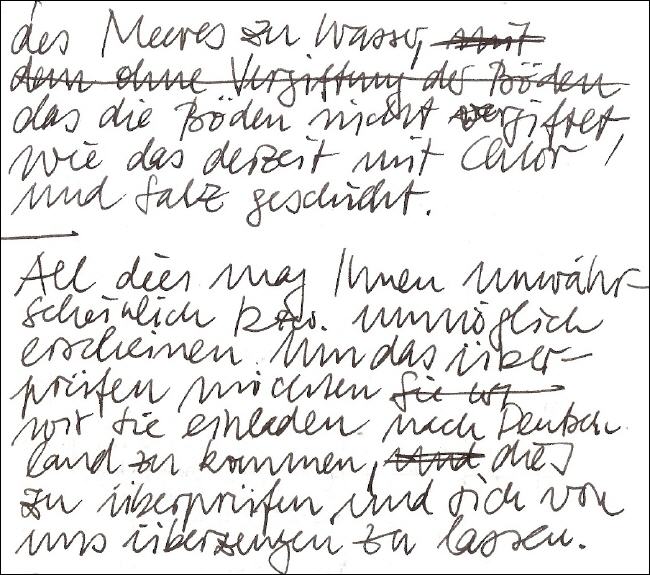 des Meeres zu Wasser, mit
dem ohne Vergiftung der Böden
das die Böden nicht vergiftet,
wie das derzeit mit Chlor
und Salz geschieht.
All dies mag Ihnen unwahr-
scheinlich bzw. unmöglich
erscheinen. Um das über-
prüfen möchten Sie
wir Sie einladen nach Deutsch
land zu kommen, und dies
zu überprüfen und sich von
uns überzeugen zu lassen.